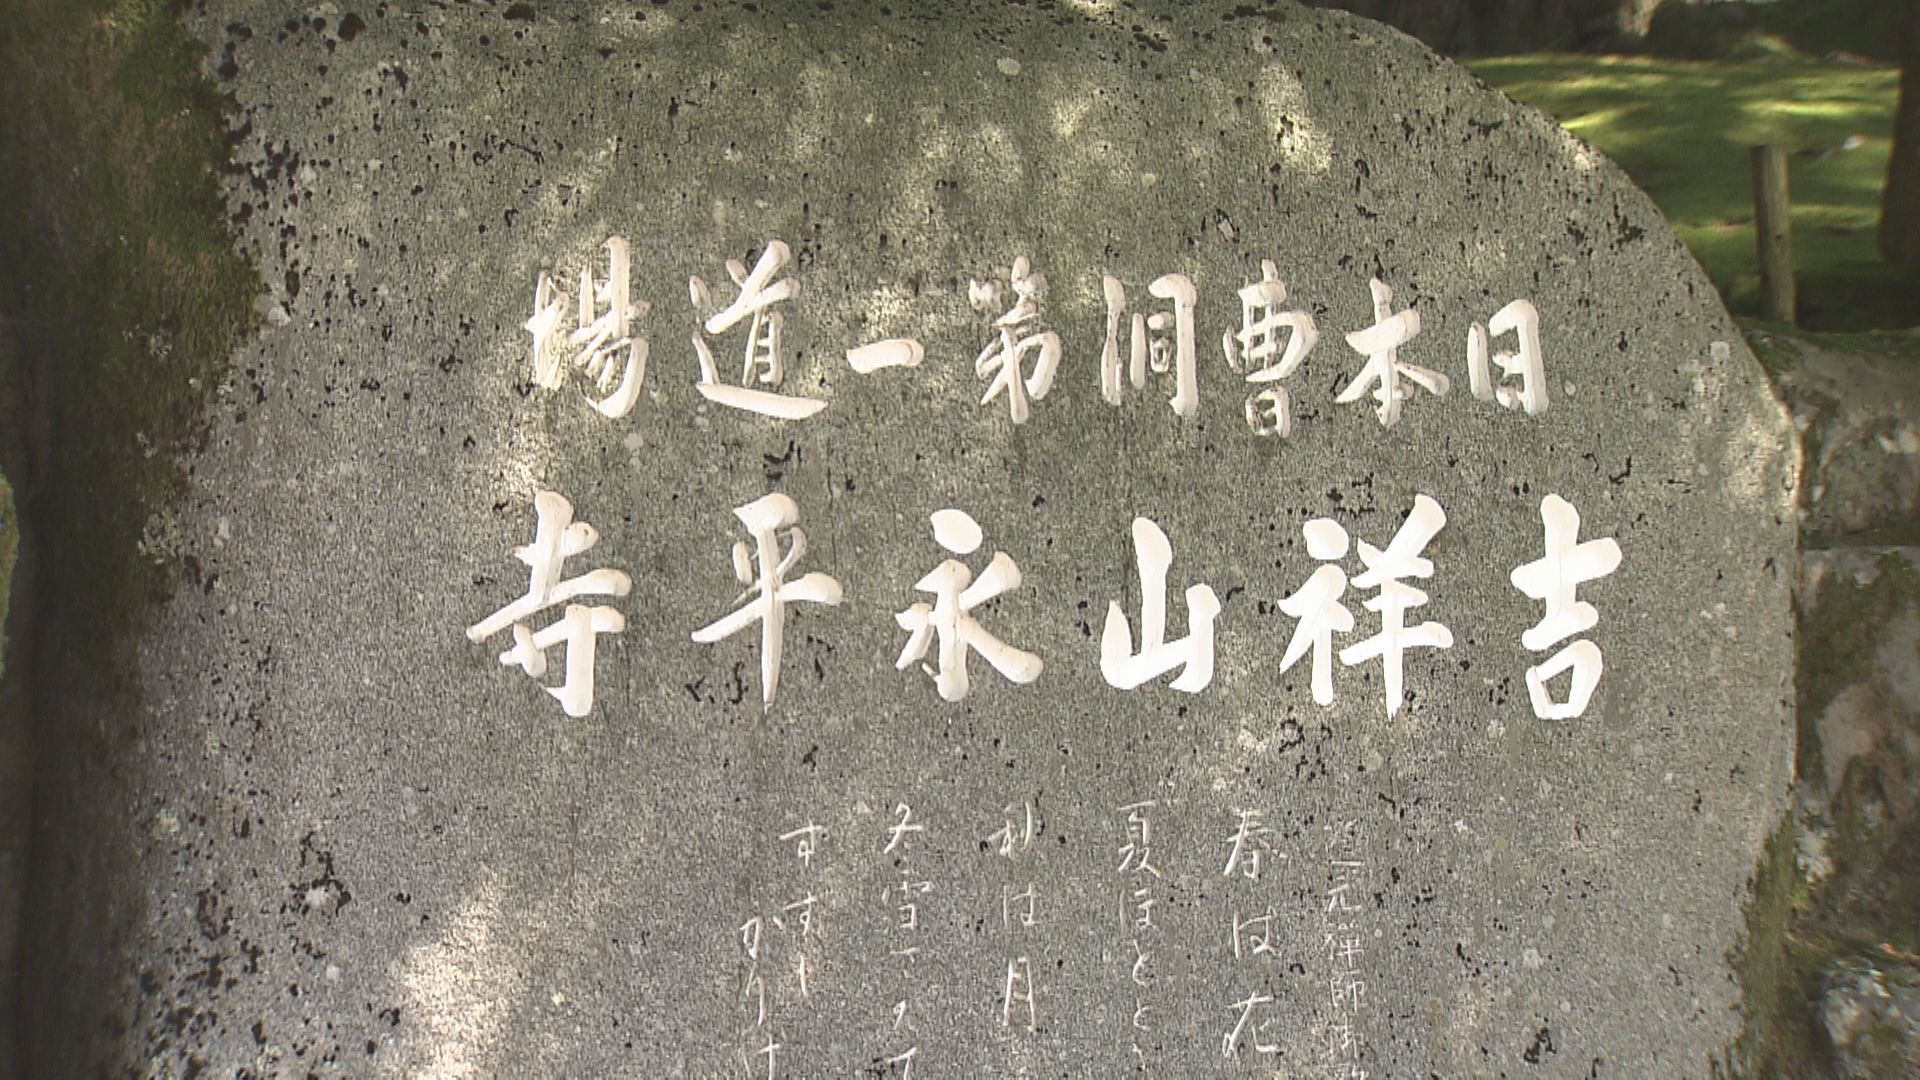 日本曹洞第一道場
吉祥山永平寺
道元禅師御
春は花
夏ほとと
秋は月
冬雪さえて
すずし
かりけ